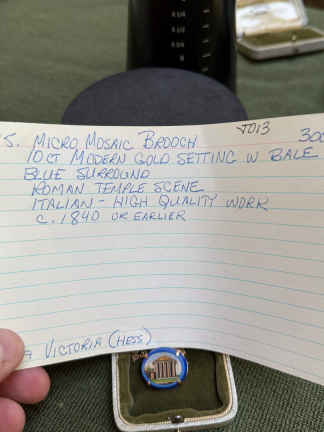 J013
5. MICRO MOSAIC BROOCH 300
10CT MODERN GOLD SETTING W BALE
BLUE SURROUND
ROMAN TEMPLE SCENE
ITALIAN - HIGH QUALITY WORK
C. 1840 OR EARLIER
VICTORIA (HESS)